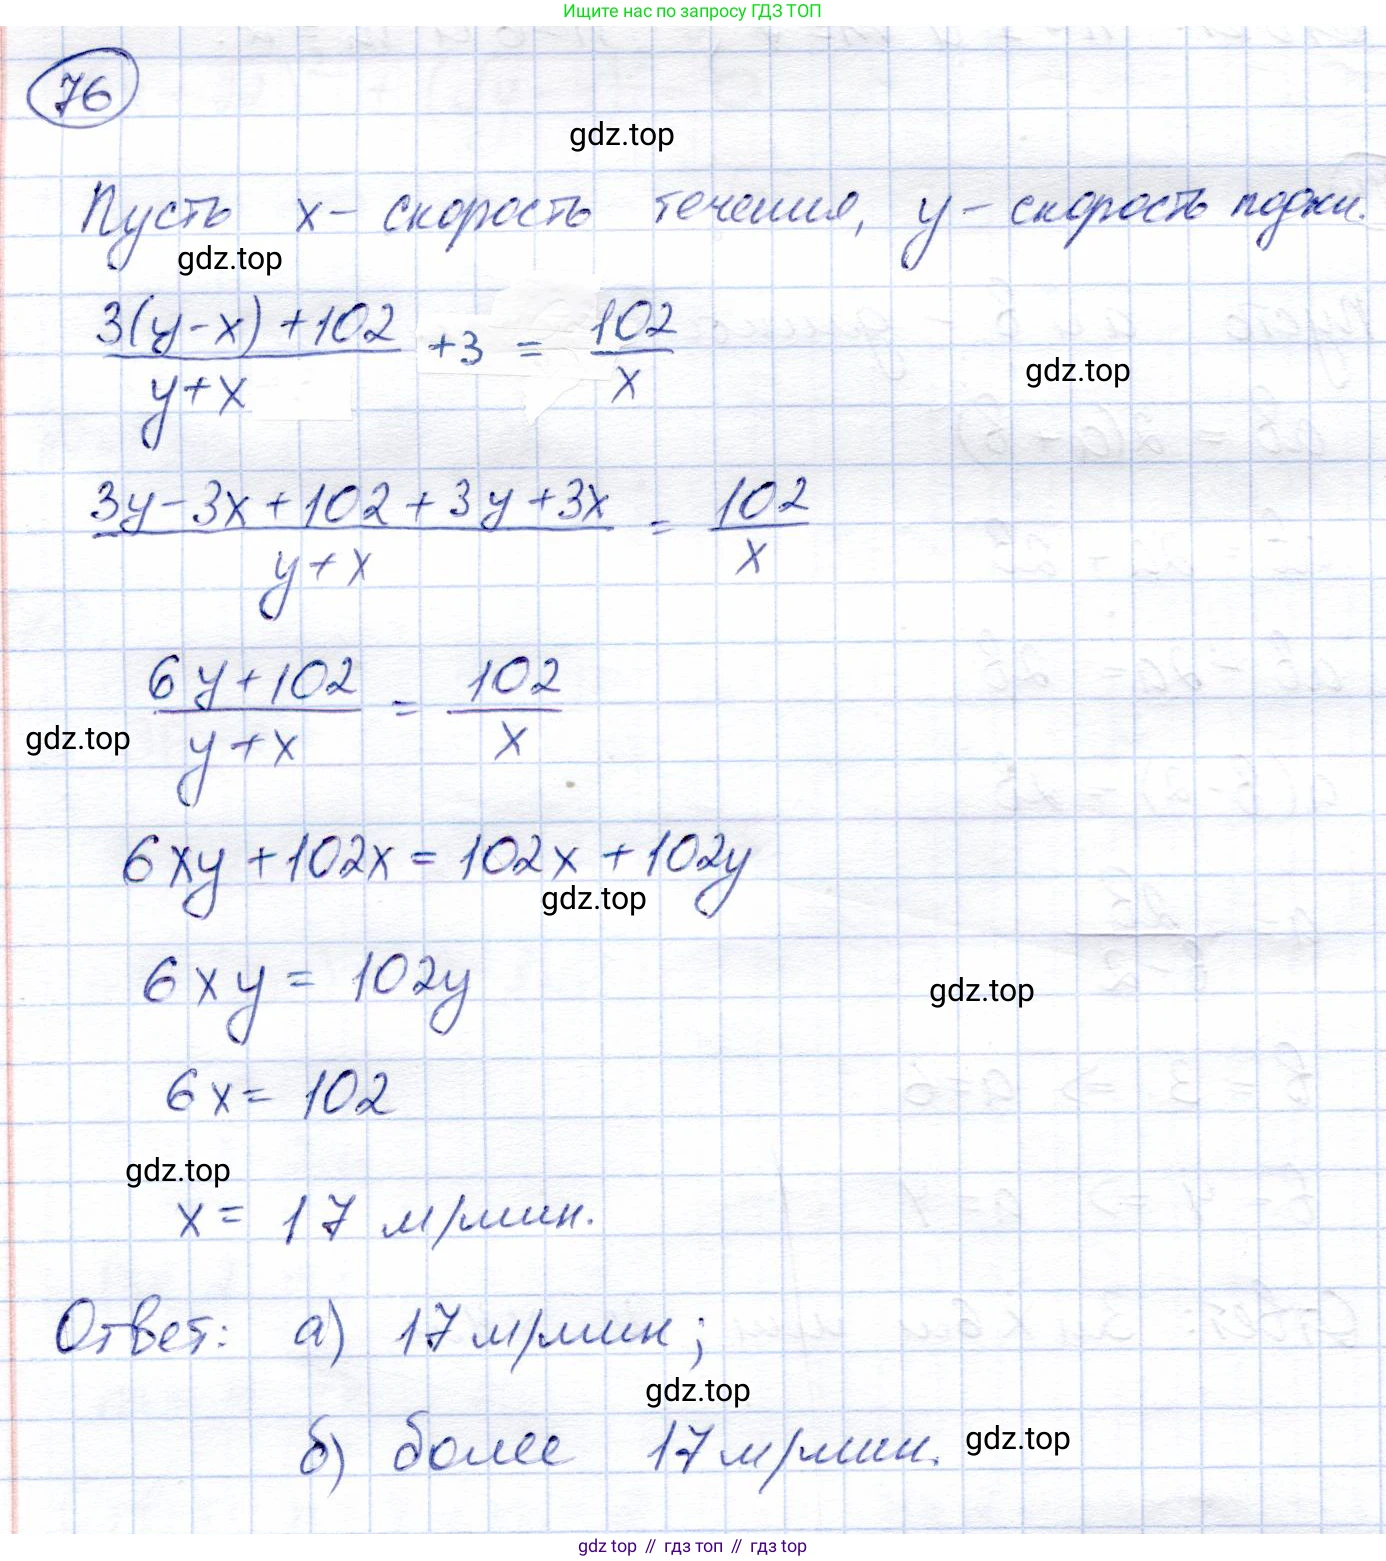 Ищите нас по запросу ГДЗ ТОП
76
gdz.top
Пусть x - скорость течения, y - скорость лодки.
gdz.top
3(y-x)+102/y+x +3 = 102/x
gdz.top
3y-3x+102+3y+3x/y+x = 102/x
6y+102/y+x = 102/x
gdz.top
6xy+102x=102x+102y
gdz.top
6xy=102y
gdz.top
6x=102
gdz.top
x= 17 м/мин.
Ответ: а) 17 м/мин;
gdz.top
б) более 17 м/мин.
gdz.top
gdz top // гдз топ // gdz top